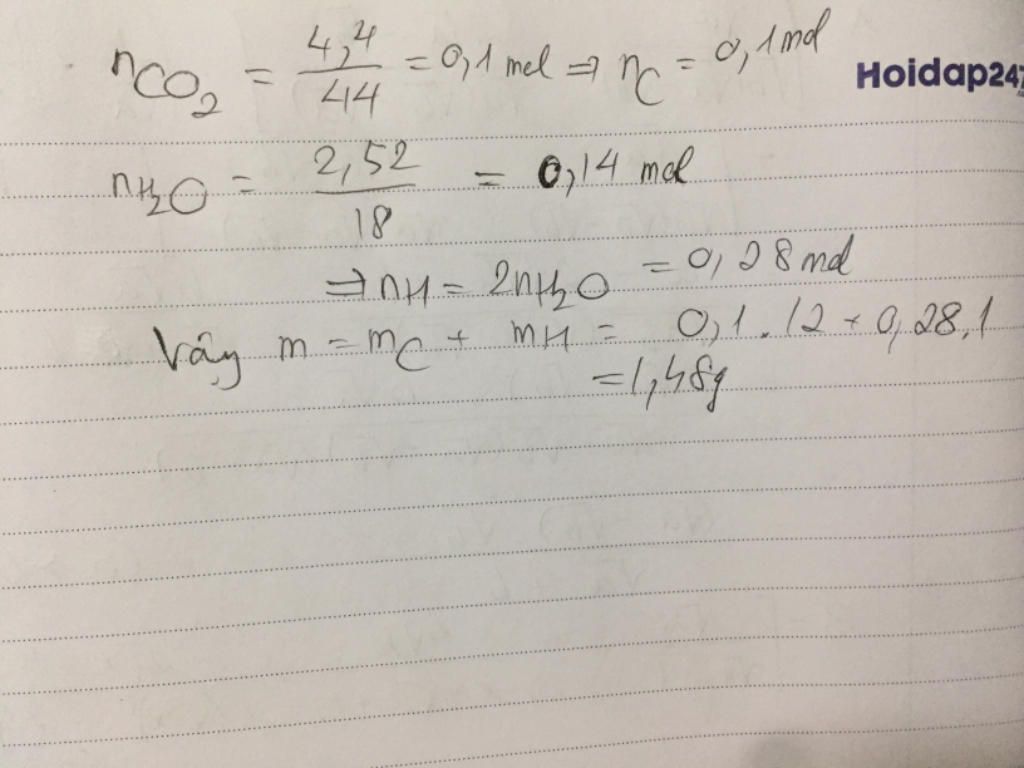 nCO₂ = 4,4/44 = 0,1 mol ⇒ nC = 0,1 mol
Hoidap247
nH₂O = 2,52/18 = 0,14 mol
⇒ nH = 2nH₂O = 0,28 mol
Vậy m = mC + mH = 0,1 . 12 + 0,28.1
= 1,48g